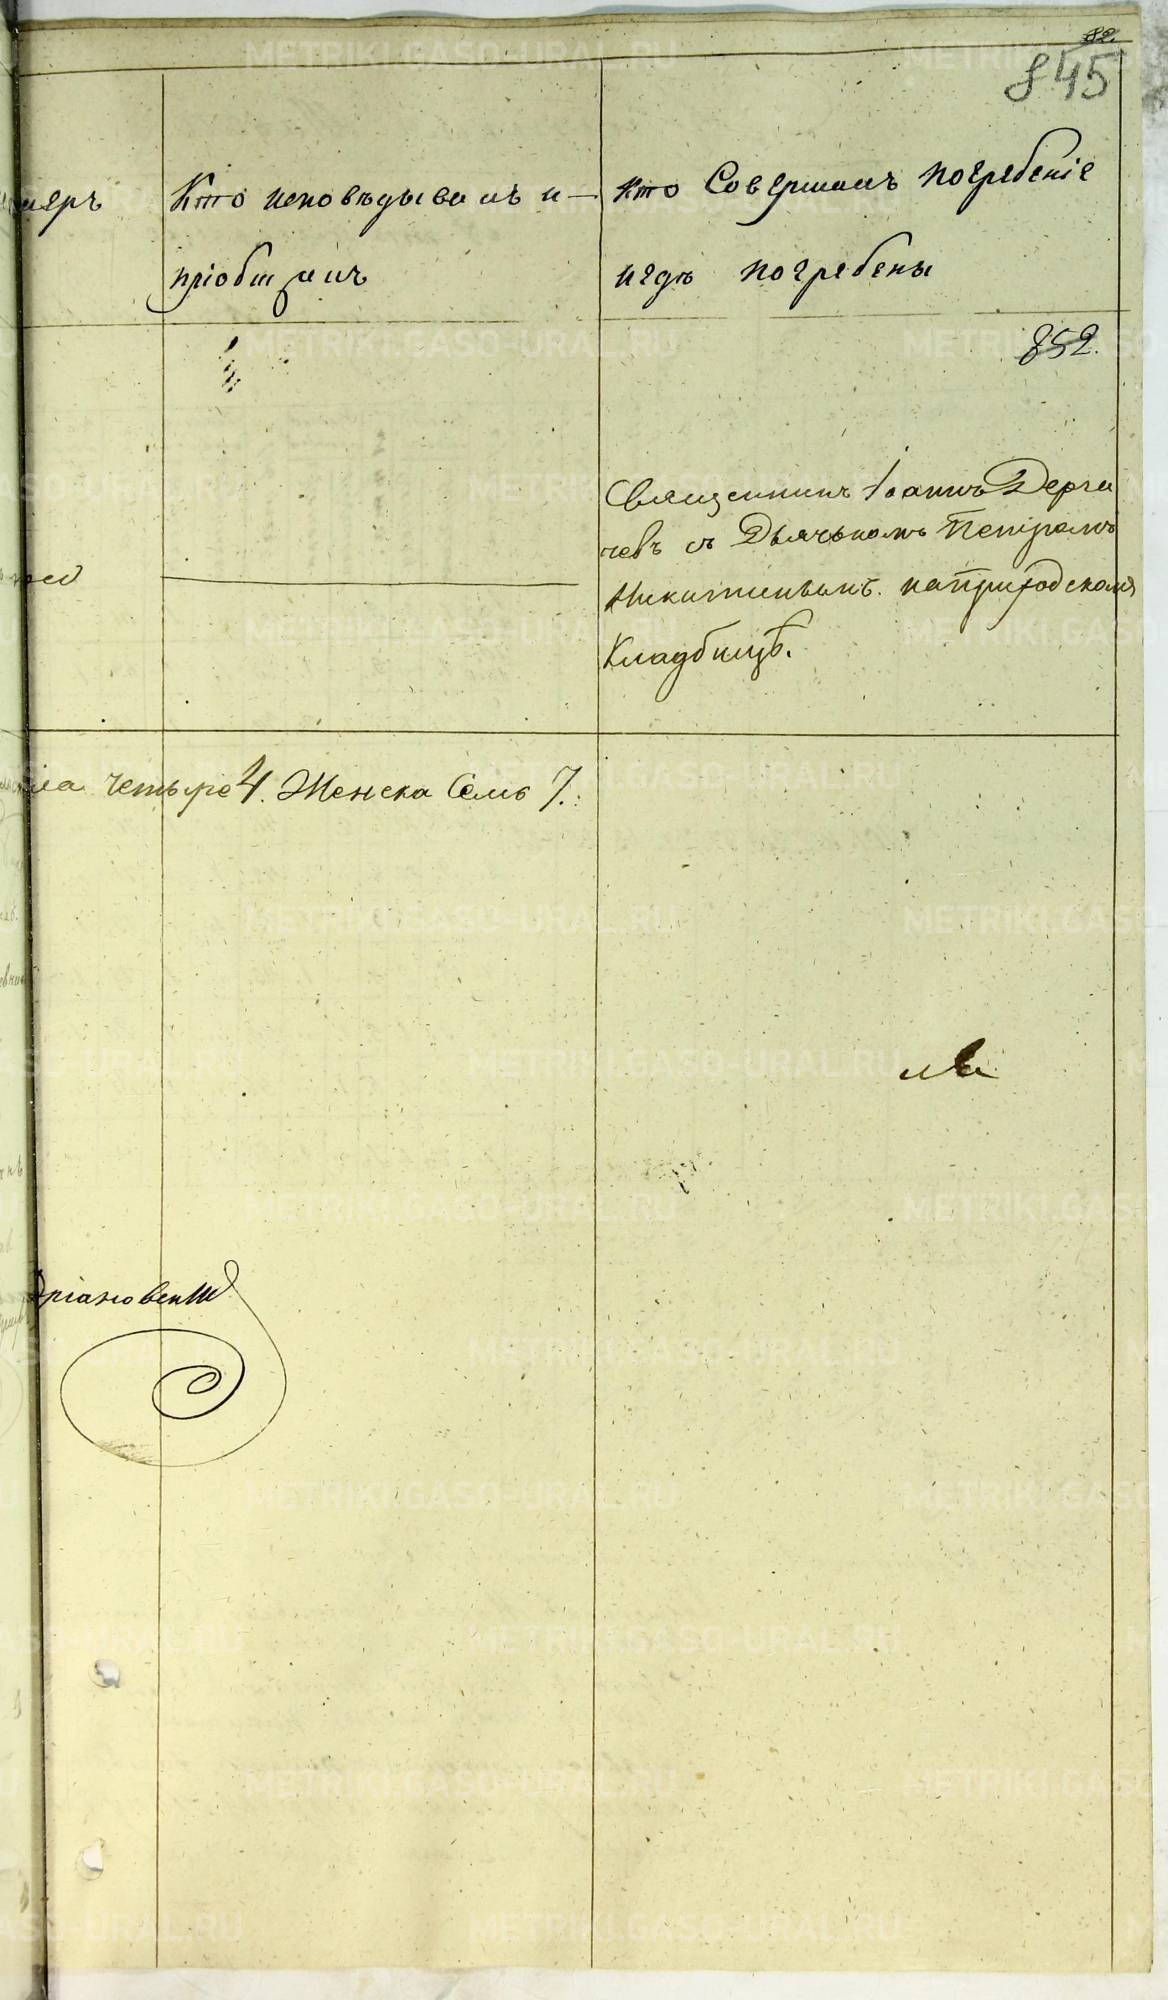 82.
845
Кто исповѣдывалъ и
пріобщалъ
Кто Совершалъ погребеніе
и гдѣ погребены
852.
Священникъ Іоаннъ Дерга
чевъ съ Дьячькомъ Петромъ
Никитинымъ. на приходскомъ
Кладбищѣ.
ла четыре 4. Женска Семь 7.